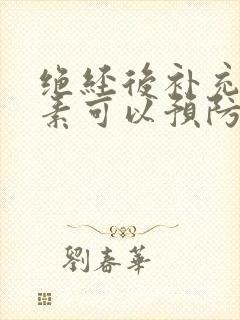 绝经後补充
素可以預防
劉春華